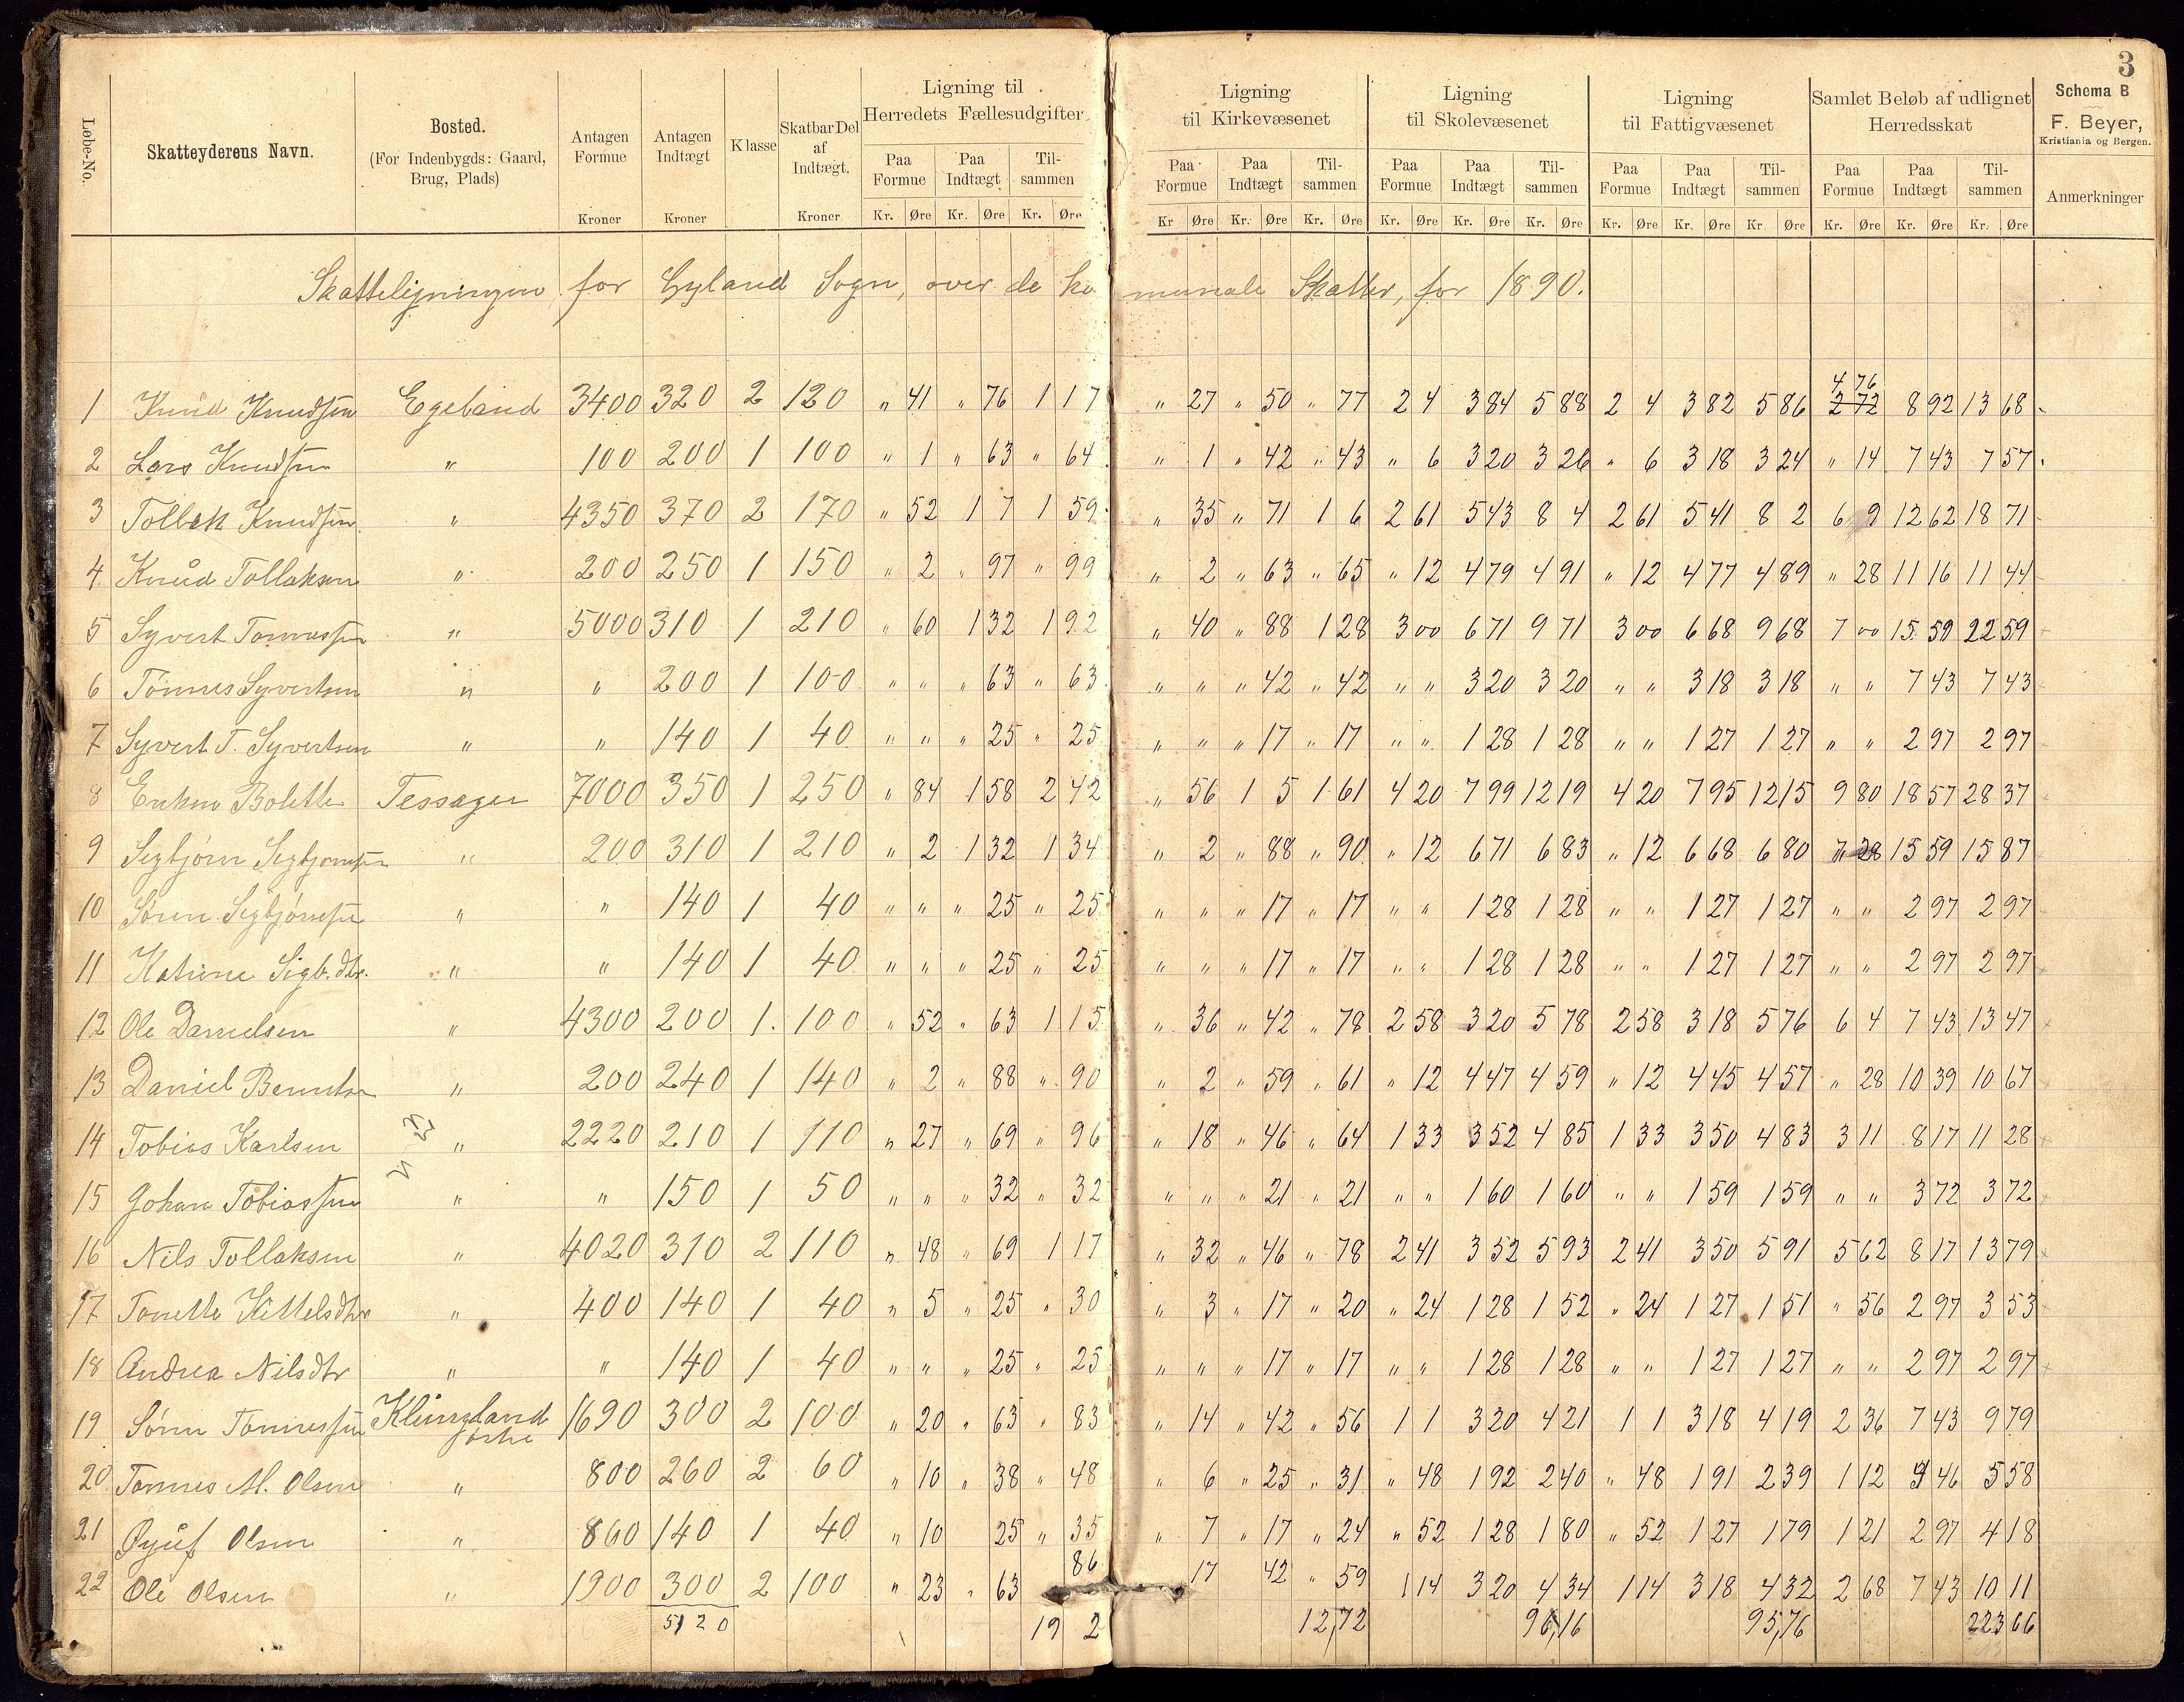 3
Løbe-No.
Skatteyderens Navn.
Bosted.
(For Indenbygds: Gaard, Brug, Plads)
Antagen Formue
Kroner
Antagen Indtægt
Kroner
Klasse
Skatbar Del af Indtægt.
Kroner
Ligning til Herredets Fællesudgifter
Paa Formue Paa Indtægt Tilsammen
Kr. Øre Kr. Øre Kr. Øre
Ligning til Kirkevæsenet
Paa Formue Paa Indtægt Tilsammen
Kr Øre Kr. Øre Kr. Øre
Ligning til Skolevæsenet
Paa Formue Paa Indtægt Tilsammen
Kr. Øre Kr. Øre Kr. Øre
Ligning til Fattigvæsenet
Paa Formue Paa Indtægt Tilsammen
Kr. Øre Kr. Øre Kr Øre
Samlet Beløb af udlignet Herredsskat
Paa Formue Paa Indtægt Tilsammen
Kr. Øre Kr. Øre Kr. Øre
Schema B
F. Beyer,
Kristiania og Bergen.
Anmerkninger
Skatteligningen for Gyland Sogn, over de ko munale Skatter, for 1890.
1 Knud Knudsen Egeland 3400 320 2 120 " 41 " 76 1 17 " 27 " 50 " 77 2 4 3 84 5 88 2 4 3 82 5 86 4 76 2 72 8 92 13 68
2 Lars Knudsen " 100 200 1 100 " 1 " 63 " 64 " 1 " 42 " 43 " 6 3 20 3 26 " 6 3 18 3 24 " 14 7 43 7 57
3 Tollek Knudsen " 4350 370 2 170 " 52 1 7 1 59 " 35 " 71 1 6 2 61 5 43 8 4 2 61 5 41 8 2 6 9 12 62 18 71
4 Knud Tollaksen " 200 250 1 150 " 2 " 97 " 99 " 2 " 63 " 65 " 12 4 79 4 91 " 12 4 77 4 89 " 28 11 16 11 44
5 Syvert Tønnessen " 5000 310 1 210 " 60 1 32 1 92 " 40 " 88 1 28 3 00 6 71 9 71 3 00 6 68 9 68 7 00 15 59 22 59
6 Tønnes Syvertsen " " 200 1 100 " " " 63 " 63 " " " 42 " 42 " " 3 20 3 20 " " 3 18 3 18 " " 7 43 7 43
7 Syvert T. Syvertsen " " 140 1 40 " " " 25 " 25 " " " 17 " 17 " " 1 28 1 28 " " 1 27 1 27 " " 2 97 2 97
8 Bolette Tessager 7000 350 1 250 " 84 1 58 2 42 " 56 1 5 1 61 4 20 7 99 12 19 4 20 7 95 12 15 9 80 18 57 28 37
9 Segbjørn Segbjørnsen " 200 310 1 210 " 2 1 32 1 34 " 2 " 88 " 90 " 12 6 71 6 83 " 12 6 68 6 80 " 28 15 59 15 87
10 Søren Segbjørnsen " " 140 1 40 " " " 25 " 25 " " " 17 " 17 " " 1 28 1 28 " " 1 27 1 27 " " 2 97 2 97
11 Katrine Sigb.dtr. " " 140 1 40 " " " 25 " 25 " " " 17 " 17 " " 1 28 1 28 " " 1 27 1 27 " " 2 97 2 97
12 Ole Danielsen " 4300 200 1 100 " 52 " 63 1 15 " 36 " 42 " 78 2 58 3 20 5 78 2 58 3 18 5 76 6 4 7 43 13 47
13 Daniel Berntsen " 200 240 1 140 " 2 " 88 " 90 " 2 " 59 " 61 " 12 4 47 4 59 " 12 4 45 4 57 " 28 10 39 10 67
14 Tobias Karlsen " 2220 210 1 110 " 27 " 69 " 96 " 18 " 46 " 64 1 33 3 52 4 85 1 33 3 50 4 83 3 11 8 17 11 28
15 Johan Tobiassen " " 150 1 50 " " " 32 " 32 " " " 21 " 21 " " 1 60 1 60 " " 1 59 1 59 " " 3 72 3 72
16 Nils Tollaksen " 4020 310 2 110 " 48 " 69 1 17 " 32 " 46 " 78 2 41 3 52 5 93 2 41 3 50 5 91 5 62 8 17 13 79
17 Tonette Kittelsdtr " 400 140 1 40 " 5 " 25 " 30 " 3 " 17 " 20 " 24 1 28 1 52 " 24 1 27 1 51 " 56 2 97 3 53
18 Andrea Nilsdtr " " 140 1 40 " " " 25 " 25 " " " 17 " 17 " " 1 28 1 28 " " 1 27 1 27 " " 2 97 2 97
19 Søren Tønnessen Klungland 1690 300 2 100 " 20 " 63 " 83 " 14 " 42 " 56 1 1 3 20 4 21 1 1 3 18 4 19 2 36 7 43 9 79
20 Tønnes M. Olsen " 800 260 2 60 " 10 " 38 " 48 " 6 " 25 " 31 " 48 1 92 2 40 " 48 1 91 2 39 1 12 4 46 5 58
21 Olsen " 860 140 1 40 " 10 25 " 35 " 7 " 17 " 24 " 52 1 28 1 80 " 52 1 27 1 79 1 21 2 97 4 18
22 Ole Olsen " 1900 300 2 100 " 23 " 63 86 17 42 " 59 1 14 3 20 4 34 1 14 3 18 4 32 2 68 7 43 10 11
5120 19 2 12,72 96,16 95,76 223 66